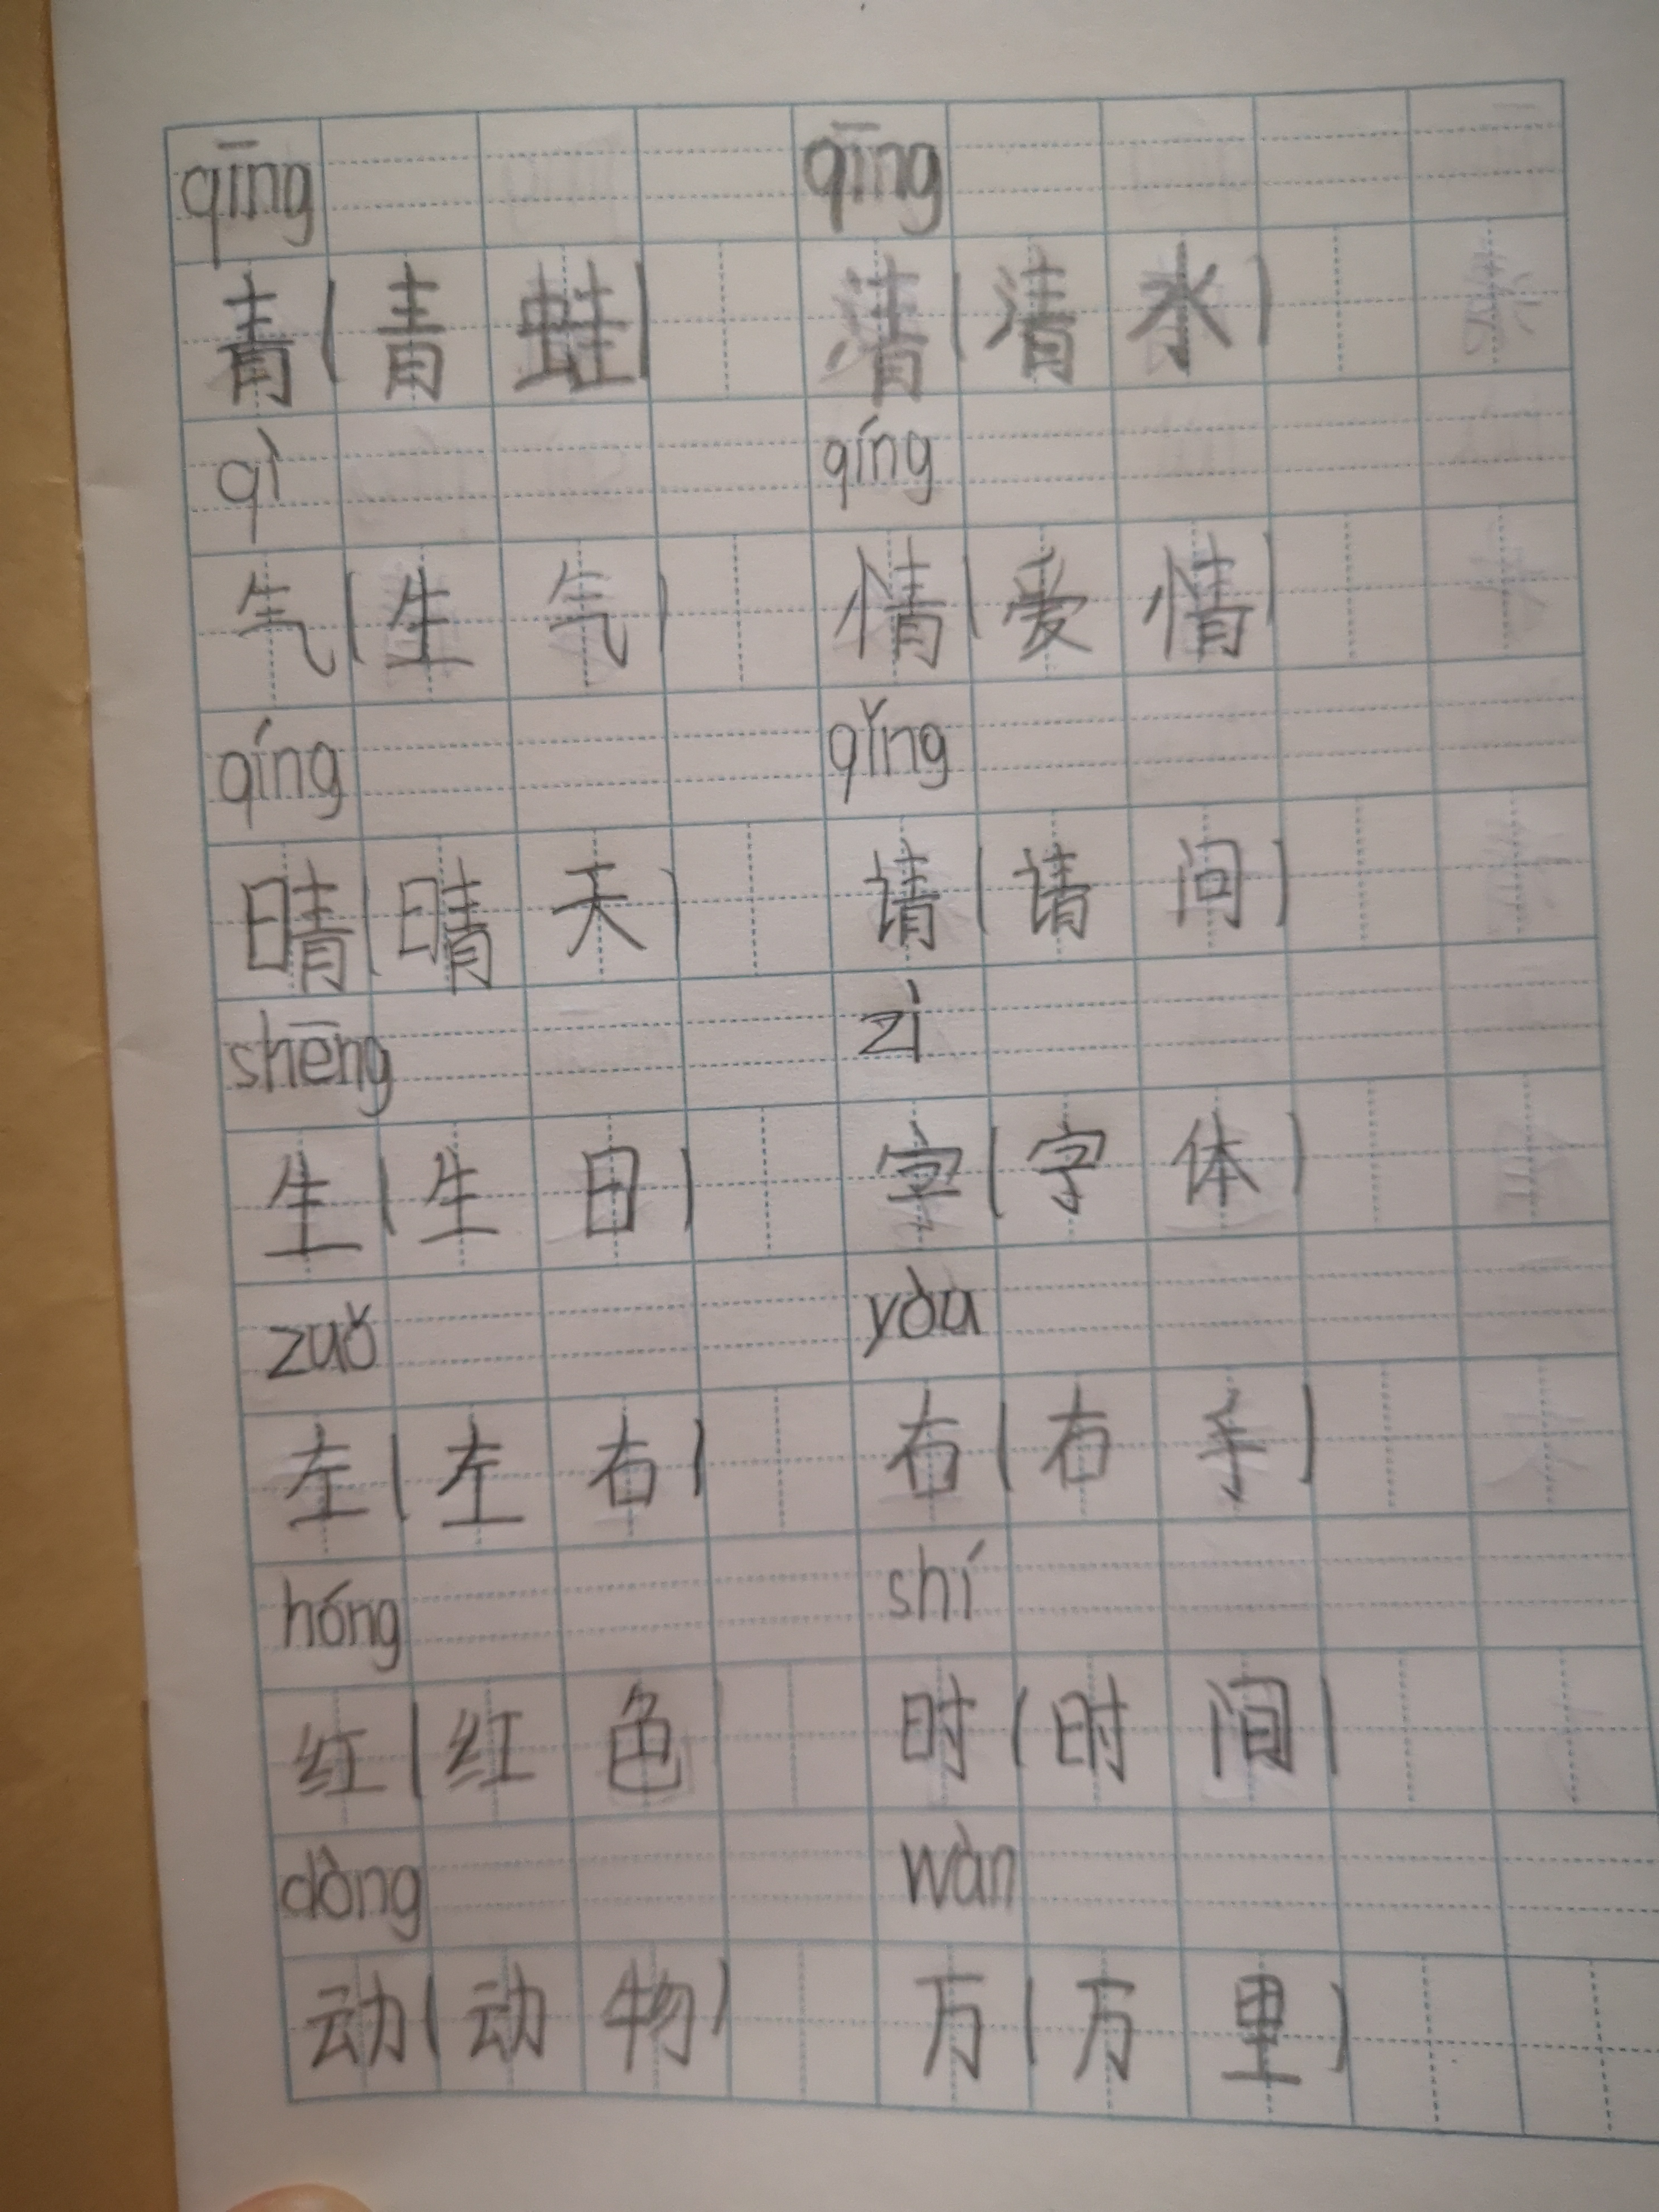 qīng qīng
青(青蛙) 清(清水)
qì qíng
气(生气) 情(爱情)
qíng qǐng
晴(晴天) 请(请问)
shēng zì
生(生日) 字(字体)
zuǒ yòu
左(左右) 右(右手)
hóng shí
红(红色) 时(时间)
dòng wàn
动(动物) 万(万里)